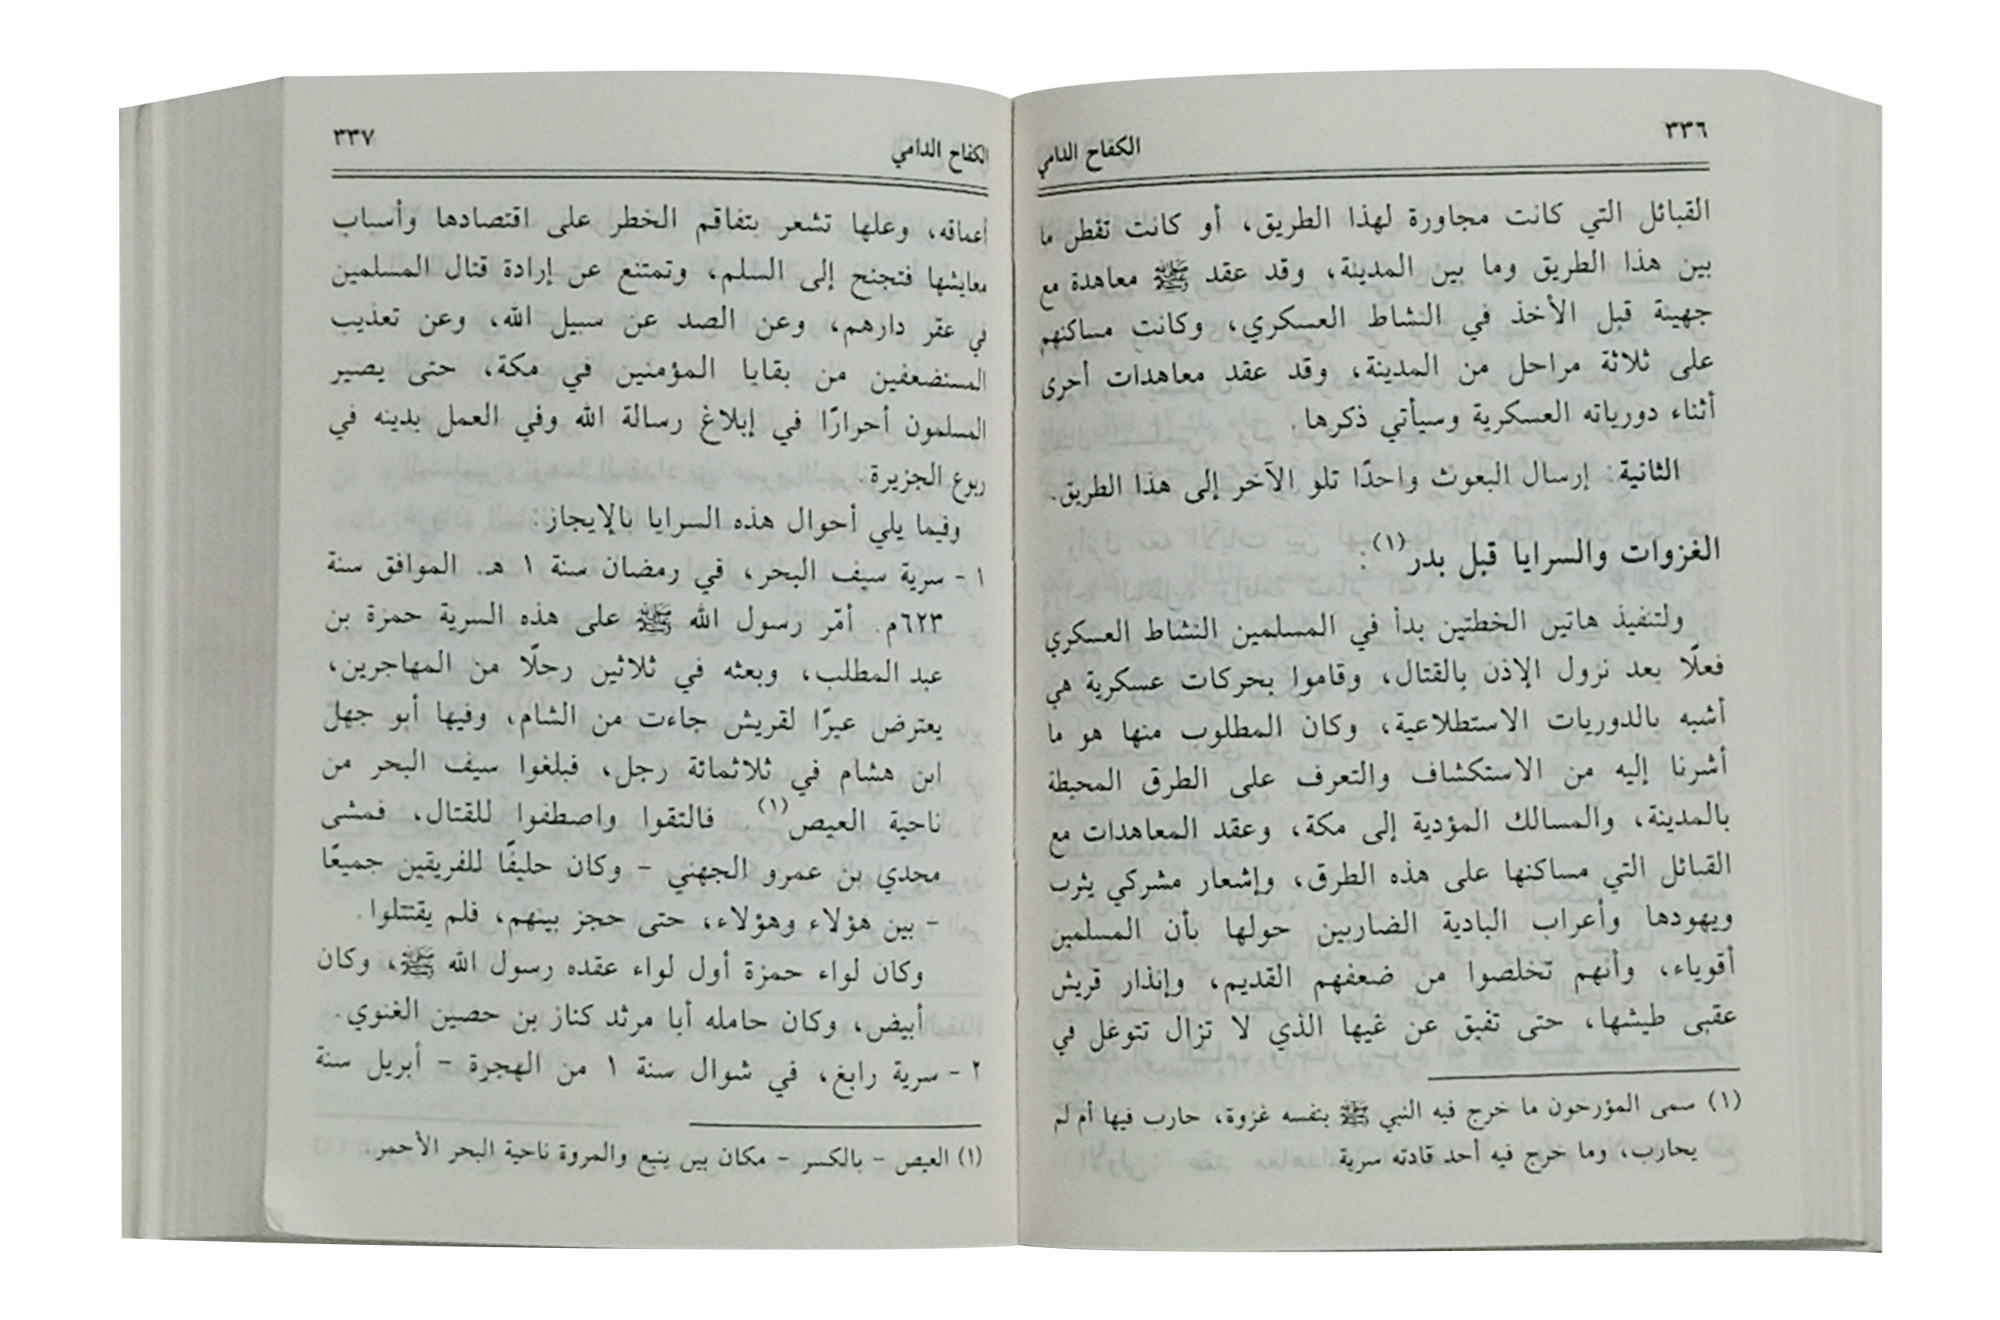 ٣٣٦
الكفاح الدامي
القبائل التي كانت مجاورة لهذا الطريق، أو كانت تقطن ما
بين هذا الطريق وما بين المدينة، وقد عقد ﷺ معاهدة مع
جهينة قبل الأخذ في النشاط العسكري، وكانت مساكنهم
على ثلاثة مراحل من المدينة، وقد عقد معاهدات أخرى
أثناء دورياته العسكرية وسيأتي ذكرها.
الثانية: إرسال البعوث واحدًا تلو الآخر إلى هذا الطريق.
الغزوات والسرايا قبل بدر(١):
ولتنفيذ هاتين الخطتين بدأ في المسلمين النشاط العسكري
فعلًا بعد نزول الإذن بالقتال، وقاموا بحركات عسكرية هي
أشبه بالدوريات الاستطلاعية، وكان المطلوب منها هو ما
أشرنا إليه من الاستكشاف والتعرف على الطرق المحيطة
بالمدينة، والمسالك المؤدية إلى مكة، وعقد المعاهدات مع
القبائل التي مساكنها على هذه الطرق، وإشعار مشركي يثرب
ويهودها وأعراب البادية الضاربين حولها بأن المسلمين
أقوياء، وأنهم تخلصوا من ضعفهم القديم، وإنذار قريش
عقبى طيشها، حتى تفيق عن غيها الذي لا تزال تتوغل في
(١) سمى المؤرخون ما خرج فيه النبي ﷺ بنفسه غزوة، حارب فيها أم لم
يحارب، وما خرج فيه أحد قادته سرية
الكفاح الدامي
٣٣٧
أعماقه، وعلها تشعر بتفاقم الخطر على اقتصادها وأسباب
معايشها فتجنح إلى السلم، وتمتنع عن إرادة قتال المسلمين
في عقر دارهم، وعن الصد عن سبيل الله، وعن تعذيب
المستضعفين من بقايا المؤمنين في مكة، حتى يصير
المسلمون أحرارًا في إبلاغ رسالة الله وفي العمل بدينه في
ربوع الجزيرة.
وفيما يلي أحوال هذه السرايا بالإيجاز:
١ - سرية سيف البحر، في رمضان سنة ١ هـ. الموافق سنة
٦٢٣م. أمّر رسول الله ﷺ على هذه السرية حمزة بن
عبد المطلب، وبعثه في ثلاثين رجلًا من المهاجرين،
يعترض عيرًا لقريش جاءت من الشام، وفيها أبو جهل
ابن هشام في ثلاثمائة رجل، فبلغوا سيف البحر من
ناحية العيص(١). فالتقوا واصطفوا للقتال، فمشى
مجدي بن عمرو الجهني - وكان حليفًا للفريقين جميعًا
- بين هؤلاء وهؤلاء، حتى حجز بينهم، فلم يقتتلوا.
وكان لواء حمزة أول لواء عقده رسول الله ﷺ، وكان
أبيض، وكان حامله أبا مرثد كناز بن حصين الغنوي.
٢ - سرية رابغ، في شوال سنة ١ من الهجرة - أبريل سنة
(١) العيص - بالكسر - مكان بين ينبع والمروة ناحية البحر الأحمر.